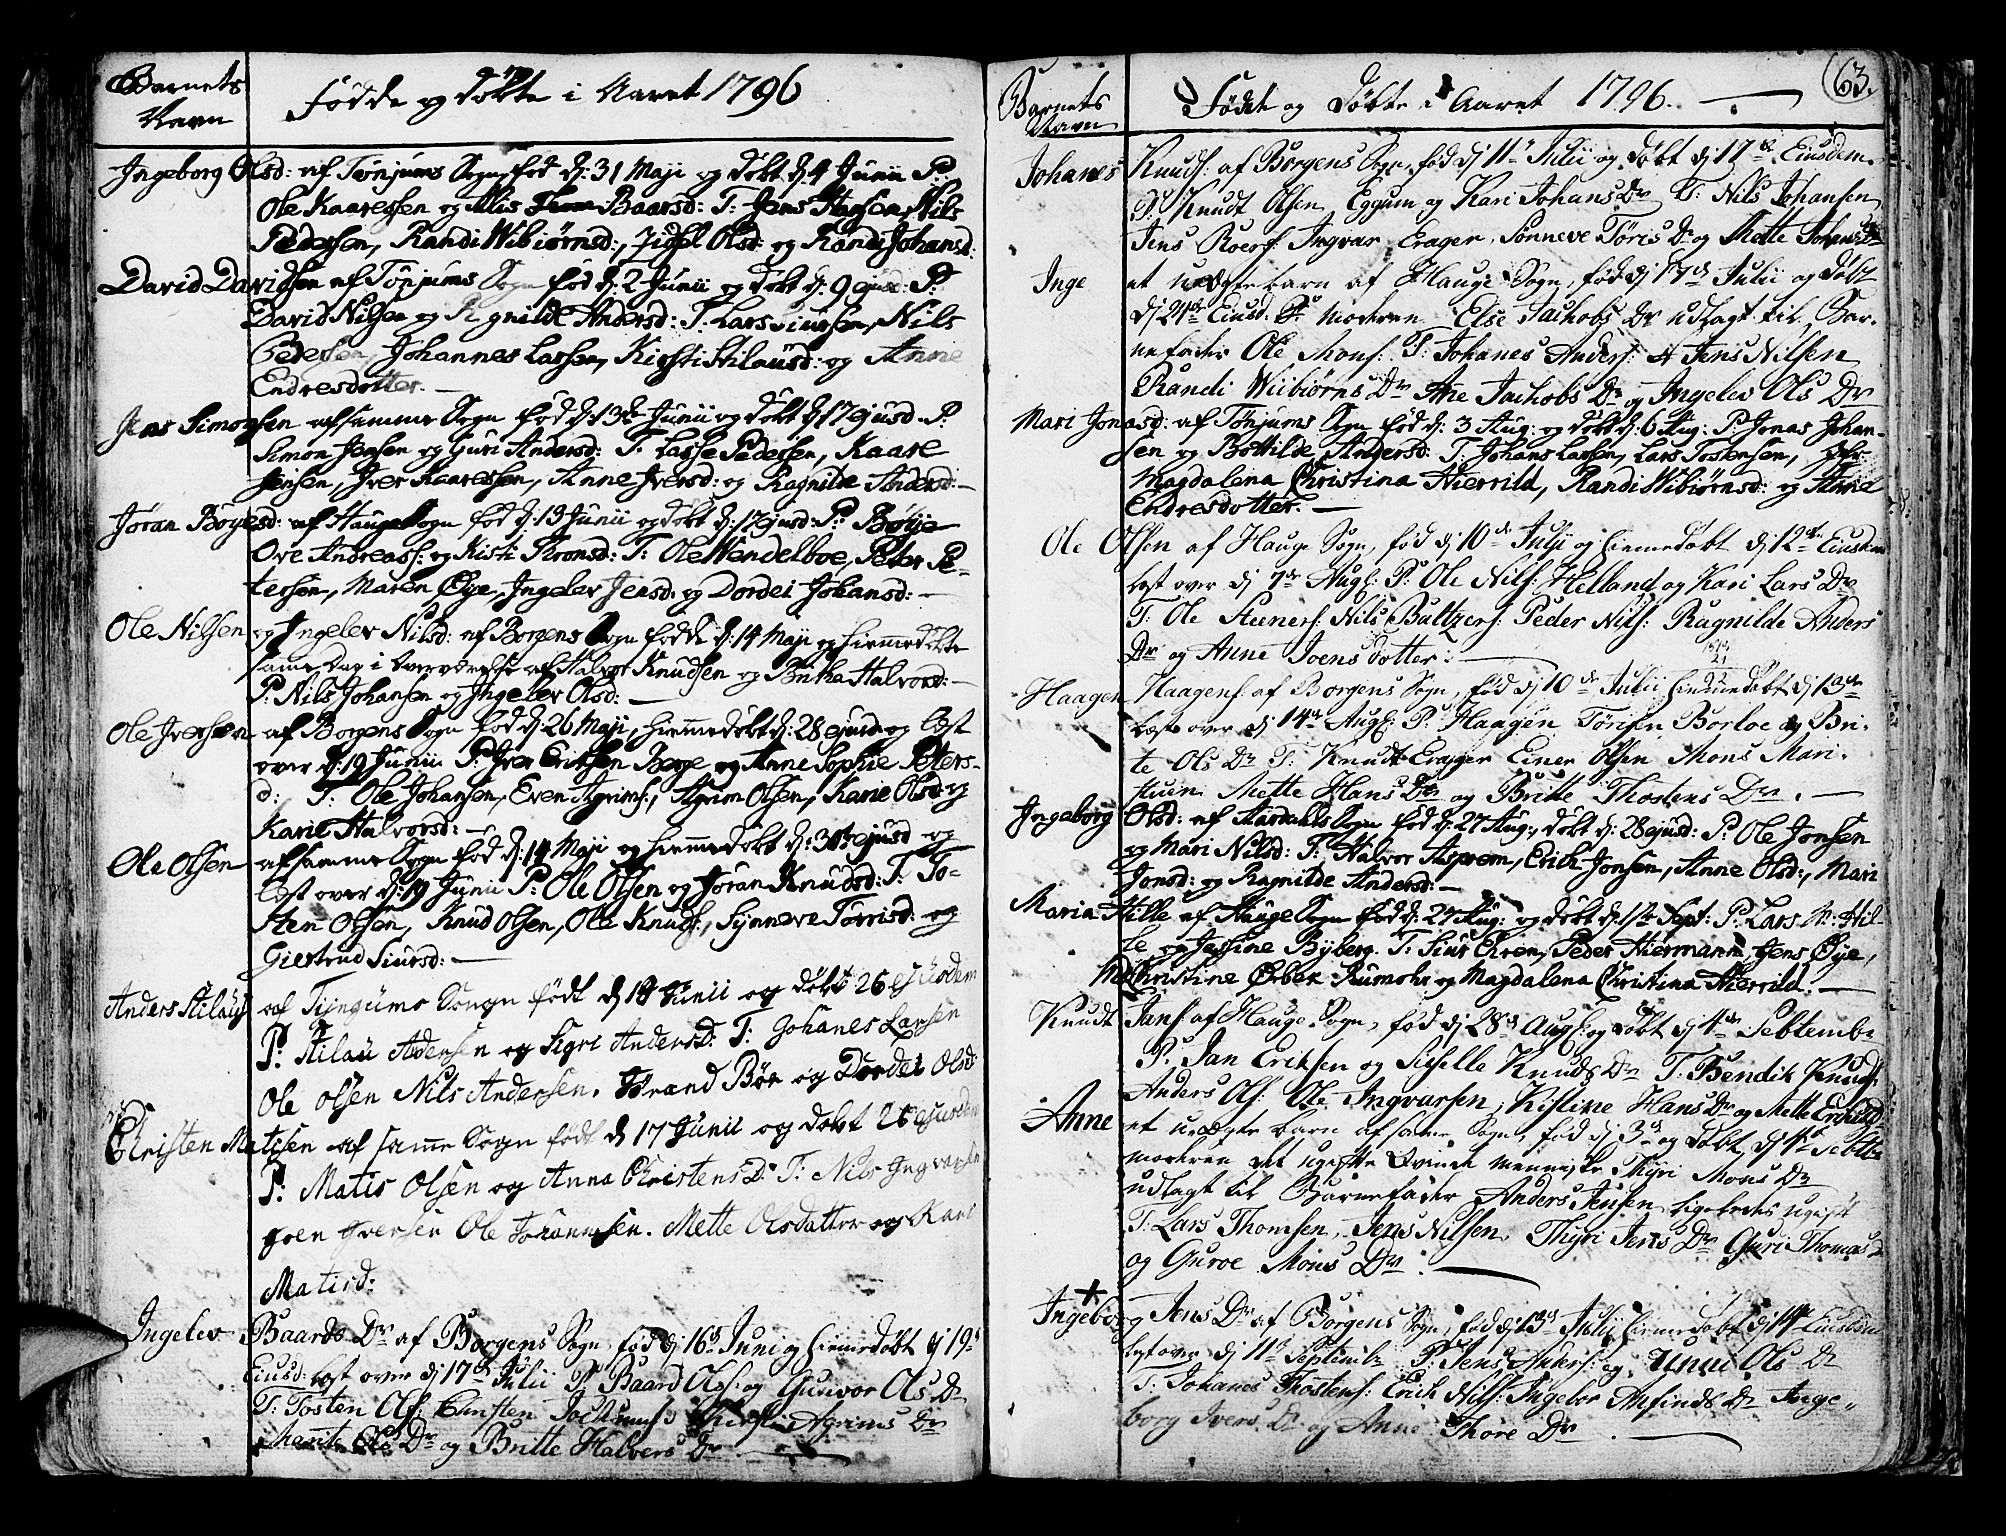 Barnets
Navn
Fødde og døbte i Aaret 1796
Ingeborg Olsd: af Tønjums Sogn, fød d: 31 Maji og døbt d: 4 Junii P:
Ole Kaaressen og Alis Baarsd: T: Jens Hansen, Nils
Pedersen, Randi Wibiørnsd:, Zidsel Olsd: og Randi Johansd:
David Davidsen af Tønjums Sogn fød d: 2 Junii og døbt d: 9 ejusd: P:
David Nilsen og Ragnilde Andersd: T: Lars Siursen, Nils
Pedersen, Johannes Larsen, Kirsti Stilausd: og Anne
Endresdotter. —
Jens Simonsen af samme Sogn fød d: 13de Junii og døbt d: 17 ejusd. P:
Simon Jensen og Guri Andersd: T: Lasse Pedersen, Kaare
Jensen, Iver Kaaressen, Anne Iversd: og Ragnilde Andersd: —
Jøran Børjesd: af Hauge Sogn fød d: 13 Junii og døbt d: 17 ejusd: P: Børje
Ove Andreass: og Kisti Tronsd: T: Ole Wendelboe, Peter Pe-
tersen, Maren Øye, Ingelev Jensd: og Dordei Johansd: —
Ole Nilsen og Ingelev Nilsd: af Borgens Sogn fødde d: 14 Maji og hiemmedøbte
samme Dag i Overværelse af Halvor Knudsen og Britha Halvorsd: —
P: Nils Johansen og Ingelev Olsd: —
Ole Iversen af Borgens Sogn fød d: 26 Maji, hiemmedøbt d: 28 ejusd og lyst
over d: 19 Junii P: Iver Eriksen Berge og Anne Sophie Peters-
d: T: Ole Johansen, Even Agrims:, Agrim Olsen, Karie Olsd: og
Karie Halvorsd: —
Ole Olsen af samme Sogn fød d: 14 Maji og hiemmedøbt d: 30te ejusd og
lyst over d: 19 Junii P: Ole Olsen og Jøran Knudsd: T: To-
sten Olsen, Knud Olsen, Ole Knuds:, Synneve Torrisd: og
Giertrud Siursd: —
Anders Stilaus: af Tyngums Songn født d 18 Junii og døbt 26 ejusdem
P: Stilau Adersen og Sigri Andersd: T: Johanes Larsen
Ole Olsen Nils Andersen. Strand Bør og Dordei Olsd:
Christen Matisen af samme Sogn født d 17 Junii og døbt 26 ejusdem
P: Matis Olsen og Anna Christensd: T: Nils Ingvarsen
Iversen Ole Johannesen. Mette Olsdatter og Kari
Matisd:
Ingelev Baards Dr af Borgens Sogn, fød dj 16de Juni og hiemmedøbt dj 19de
Eiusd: lyst over dj 17de Julii P: Baard Ols: og Gunvor Ols Dr
T: Tosten Ols: Kirsti Agrims Dr
Marit Ols Dr og Britte Halvers Dr —
63.
Barnets
Navn
Fødte og Døbte i Aaret 1796. —
Johanes Knuds: af Borgens Sogn, fød dj 11te Julii og døbt dj 17de Eiusdem.
P: Knudt Olsen Eggum og Kari Johans Dr T: Nils Johansen
Jens Roers: Ingvar Erager, Sønneve Tøris Dr og Mette Johans Dr
Inge et uægte barn af Hauge Sogn, fød dj 17de Julii og døbt
dj 24de Eiusd. P: moderen Else Jachobs Dr udlagt til Bar-
nefader Ole Mons: T: Johanes Anders: Jens Nilsen
Randi Wiibiørns Dr Ane Jachobs Dr og Ingelev Ols Dr
Mari Jonasd: af Tønjums Sogn fød d: 3 Aug: og døbt d: 6 Aug: P: Jonas Johan-
sen og Bottilde Andersd: T: Johans Larsen, Lars Tostensen,
Magdalena Christina Hierrild, Randi Wibiørnsd: og Anne
Endresdotter. —
Ole Olsen af Hauge Sogn, fød dj 10de Julii og hiemmedøbt dj 12te Eiusdem
lyst over dj 7de Augs: P: Ole Nils: Helland og Kari Lars Dr
T: Ole Steners: Nils Baltzers: Peder Nils: Ragnilde Anders
Dr og Anne Joens dotter: —
Haagen Haagens: af Borgens Sogn, fød dj 10de Julii hiemmedøbt dj 13de
lyst over dj 14de Augs: P: Haagen Torisen Borloe og Bri-
te Ols Dr T: Knudt Erager Einer Olsen Mons Mari-
stuen Mette Hans Dr og Britte Thostens Dr. —
Ingeborg Olsd: af Aardahls Sogn fød d: 27 Aug:, døbt d: 28 ejusd: P: Ole Jonsen
og Mari Nilsd: T: Halvor Asprem, Erich Jonsen, Anne Olsd:, Mari
Jonsd: og Ragnilde Andersd: —
Maria Hille af Hauge Sogn fød d: 27 Aug: og døbt d: 1ste Sept: P: Lars N: Hil-
le og Jessine Byberg. T: Siur Ehren, Peder Hiermann, Jens Øye,
Christine Ørbek Rumohr og Magdalena Christina Hierrild. —
Knudt Jans: af Hauge Sogn, fød dj 28de Augs: og døbt dj 4de Septembr
P: Jan Eriksen og Sitselle Knuds Dr T: Bendik Knuds:
Anders Ols: Ole Ingvarsen, Kistine Hans Dr og Mette
Anne et uægte barn af same Sogn, fød dj 3de og døbt dj 4de Septbr
moderen det ugifte Qvinde menniske Thyri Mons Dr
udlagt til Barnefader Anders Jensen ligeledes ugift
T: Lars Thomsen, Jens Nilsen, Thyri Jens Dr Guri Thomas Dr
og Guroe Mons Dr: —
Ingeborg Jens Dr af Borgens Sogn, fød dj 13de Julii hiemmedøbt dj 14de Eiusdem
lyst over dj 11te Septembr P: Jens Anders: og Unni Ols Dr
T: Johanes Thostens: Erich Nils: Ingebor Amfinds Dr Inge-
borg Ivers Dr og Anne Thore Dr —